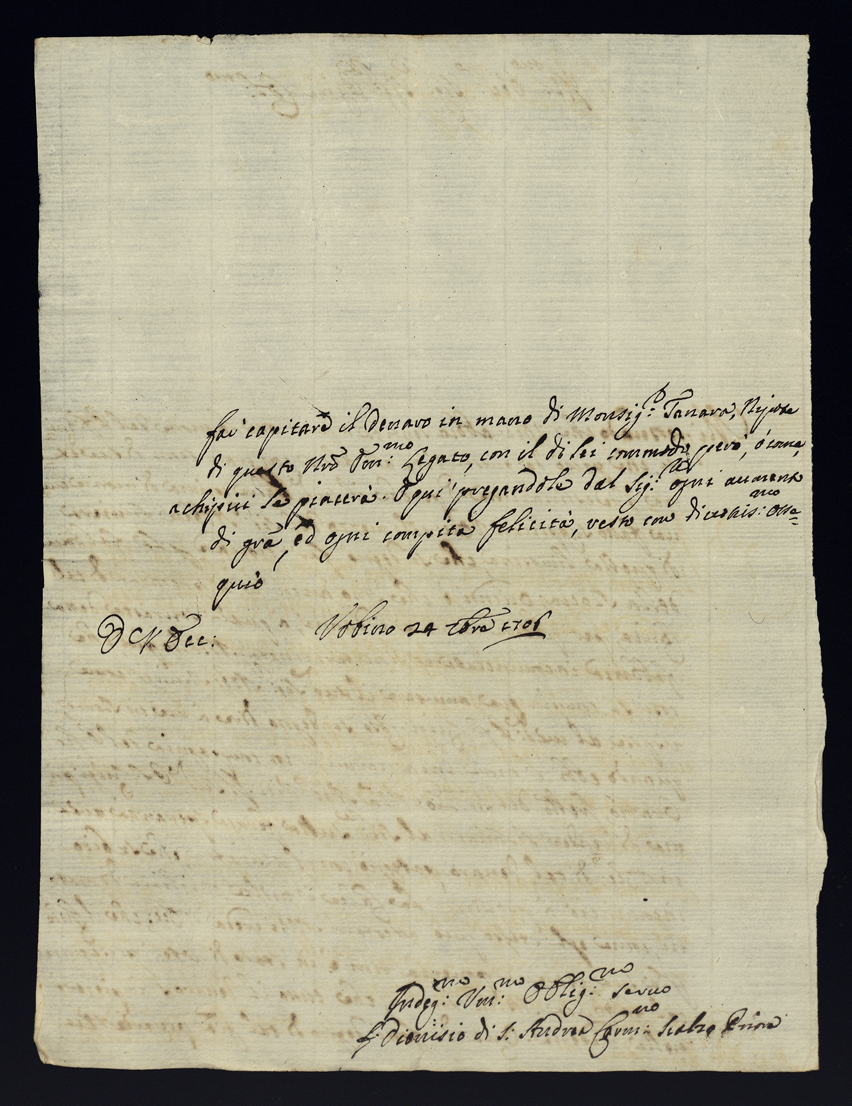 far capitare il Denaro in mano di Monsig:r Tanara, Nipote
di questo Nro Em:mo Legato, con il di lei commodo però, ò come,
achipiù le piacerà. E quì pregandole dal Sig:re ogni aumento
di grã, ed ogni compita felicità, resto con divotis:mo osse=
quio
D V S Ecc: Urbino 24 Xbre 1706
Indeg:mo Um:mo Oblig:mo Servo
F. Dionisio di S. Andrea Carm:no Scalzo Priore